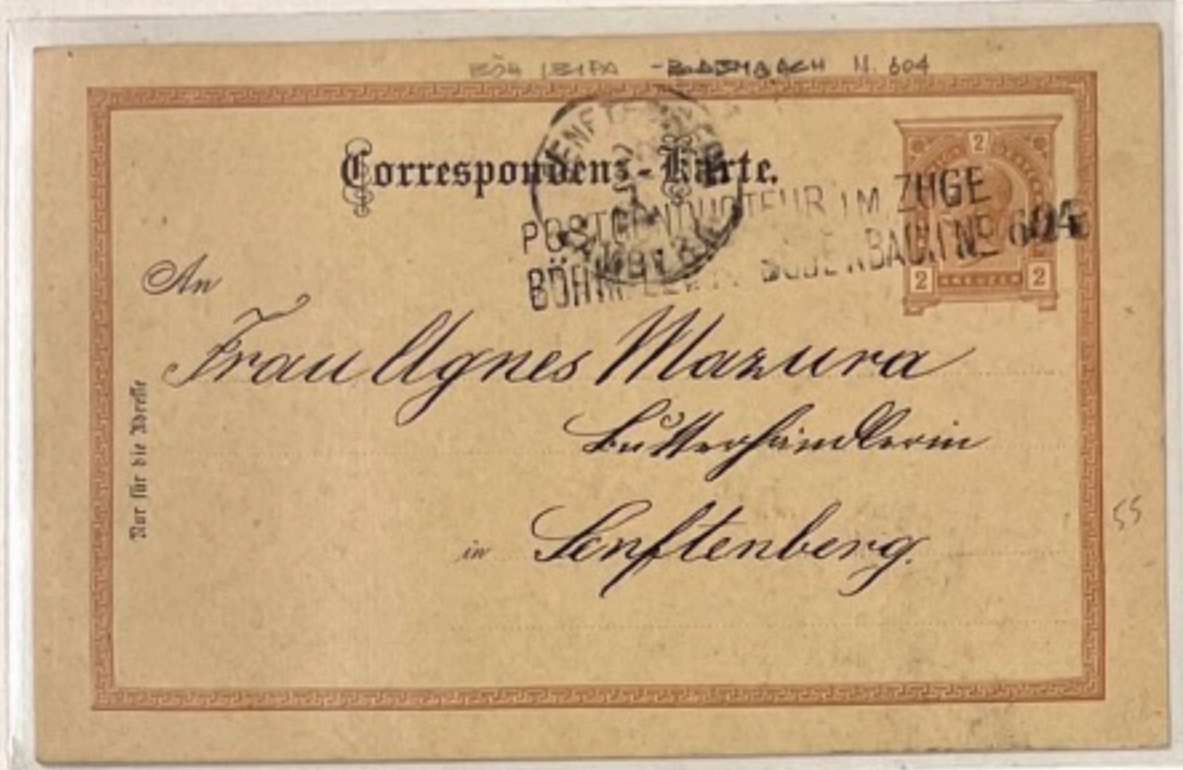 BÖH LEIPA - BODENBACH N. 604
Correspondenz-Karte.
2
POSTCONDUCTEUR IM ZUGE
BÖHM. LEIPA BODENBACH Nº 604
2 KREUZER 2
An
Frau Agnes Mazura
Butterhändlerin
in Senftenberg.
Nur für die Adresse
55